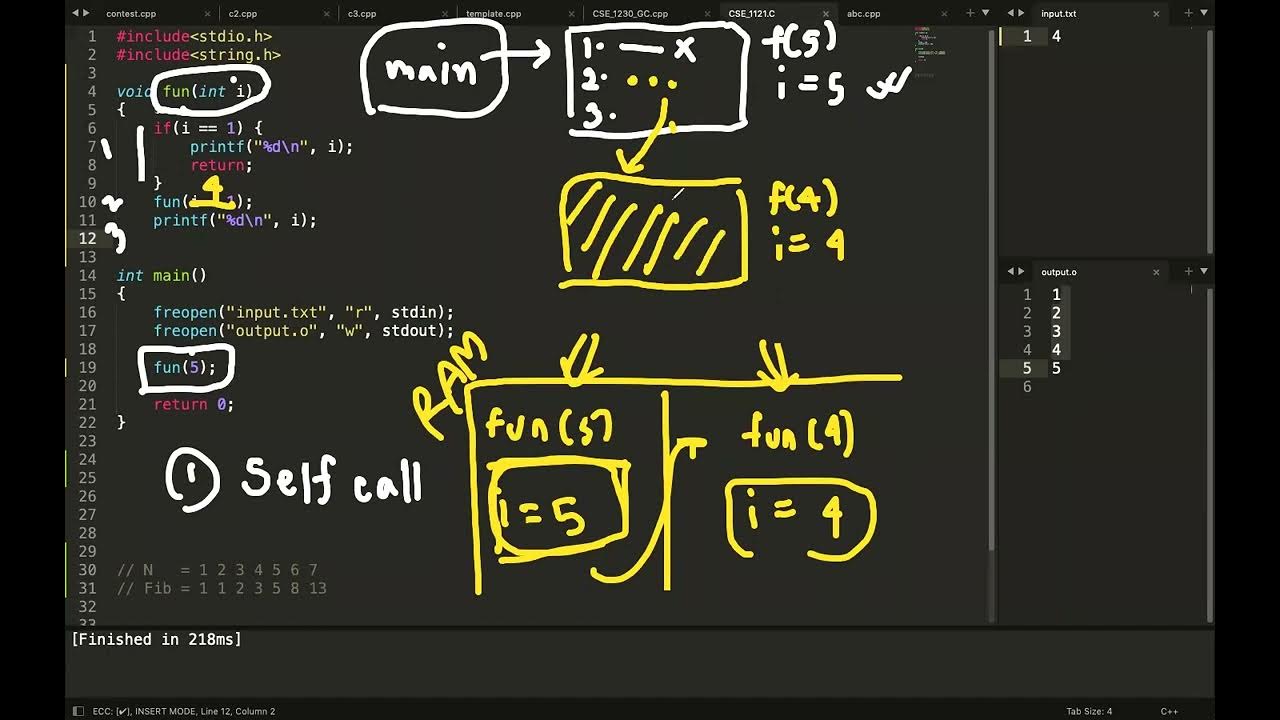 contest.cpp
c2.cpp
c3.cpp
template.cpp
CSE_1230_GC.cpp
CSE_1121.C
abc.cpp
input.txt
1 #include<stdio.h>
2 #include<string.h>
3
4 void fun(int i)
5 {
6 if(i == 1) {
7 printf("%d\n", i);
8 return;
9 }
10 fun(i 1);
11 printf("%d\n", i);
12
13
14 int main()
15 {
16 freopen("input.txt", "r", stdin);
17 freopen("output.o", "w", stdout);
18
19 fun(5);
20
21 return 0;
22 }
23
24
25
26
27
28
29
30 // N = 1 2 3 4 5 6 7
31 // Fib = 1 1 2 3 5 8 13
32
33
1
2
3
4
main
1. x
2. ...
3.
f(5)
i = 5
f(4)
i = 4
RAM
fun(5)
i = 5
fun(4)
i = 4
① Self call
1 4
output.o
1 1
2 2
3 3
4 4
5 5
6
[Finished in 218ms]
ECC: [✔], INSERT MODE, Line 12, Column 2
Tab Size: 4
C++